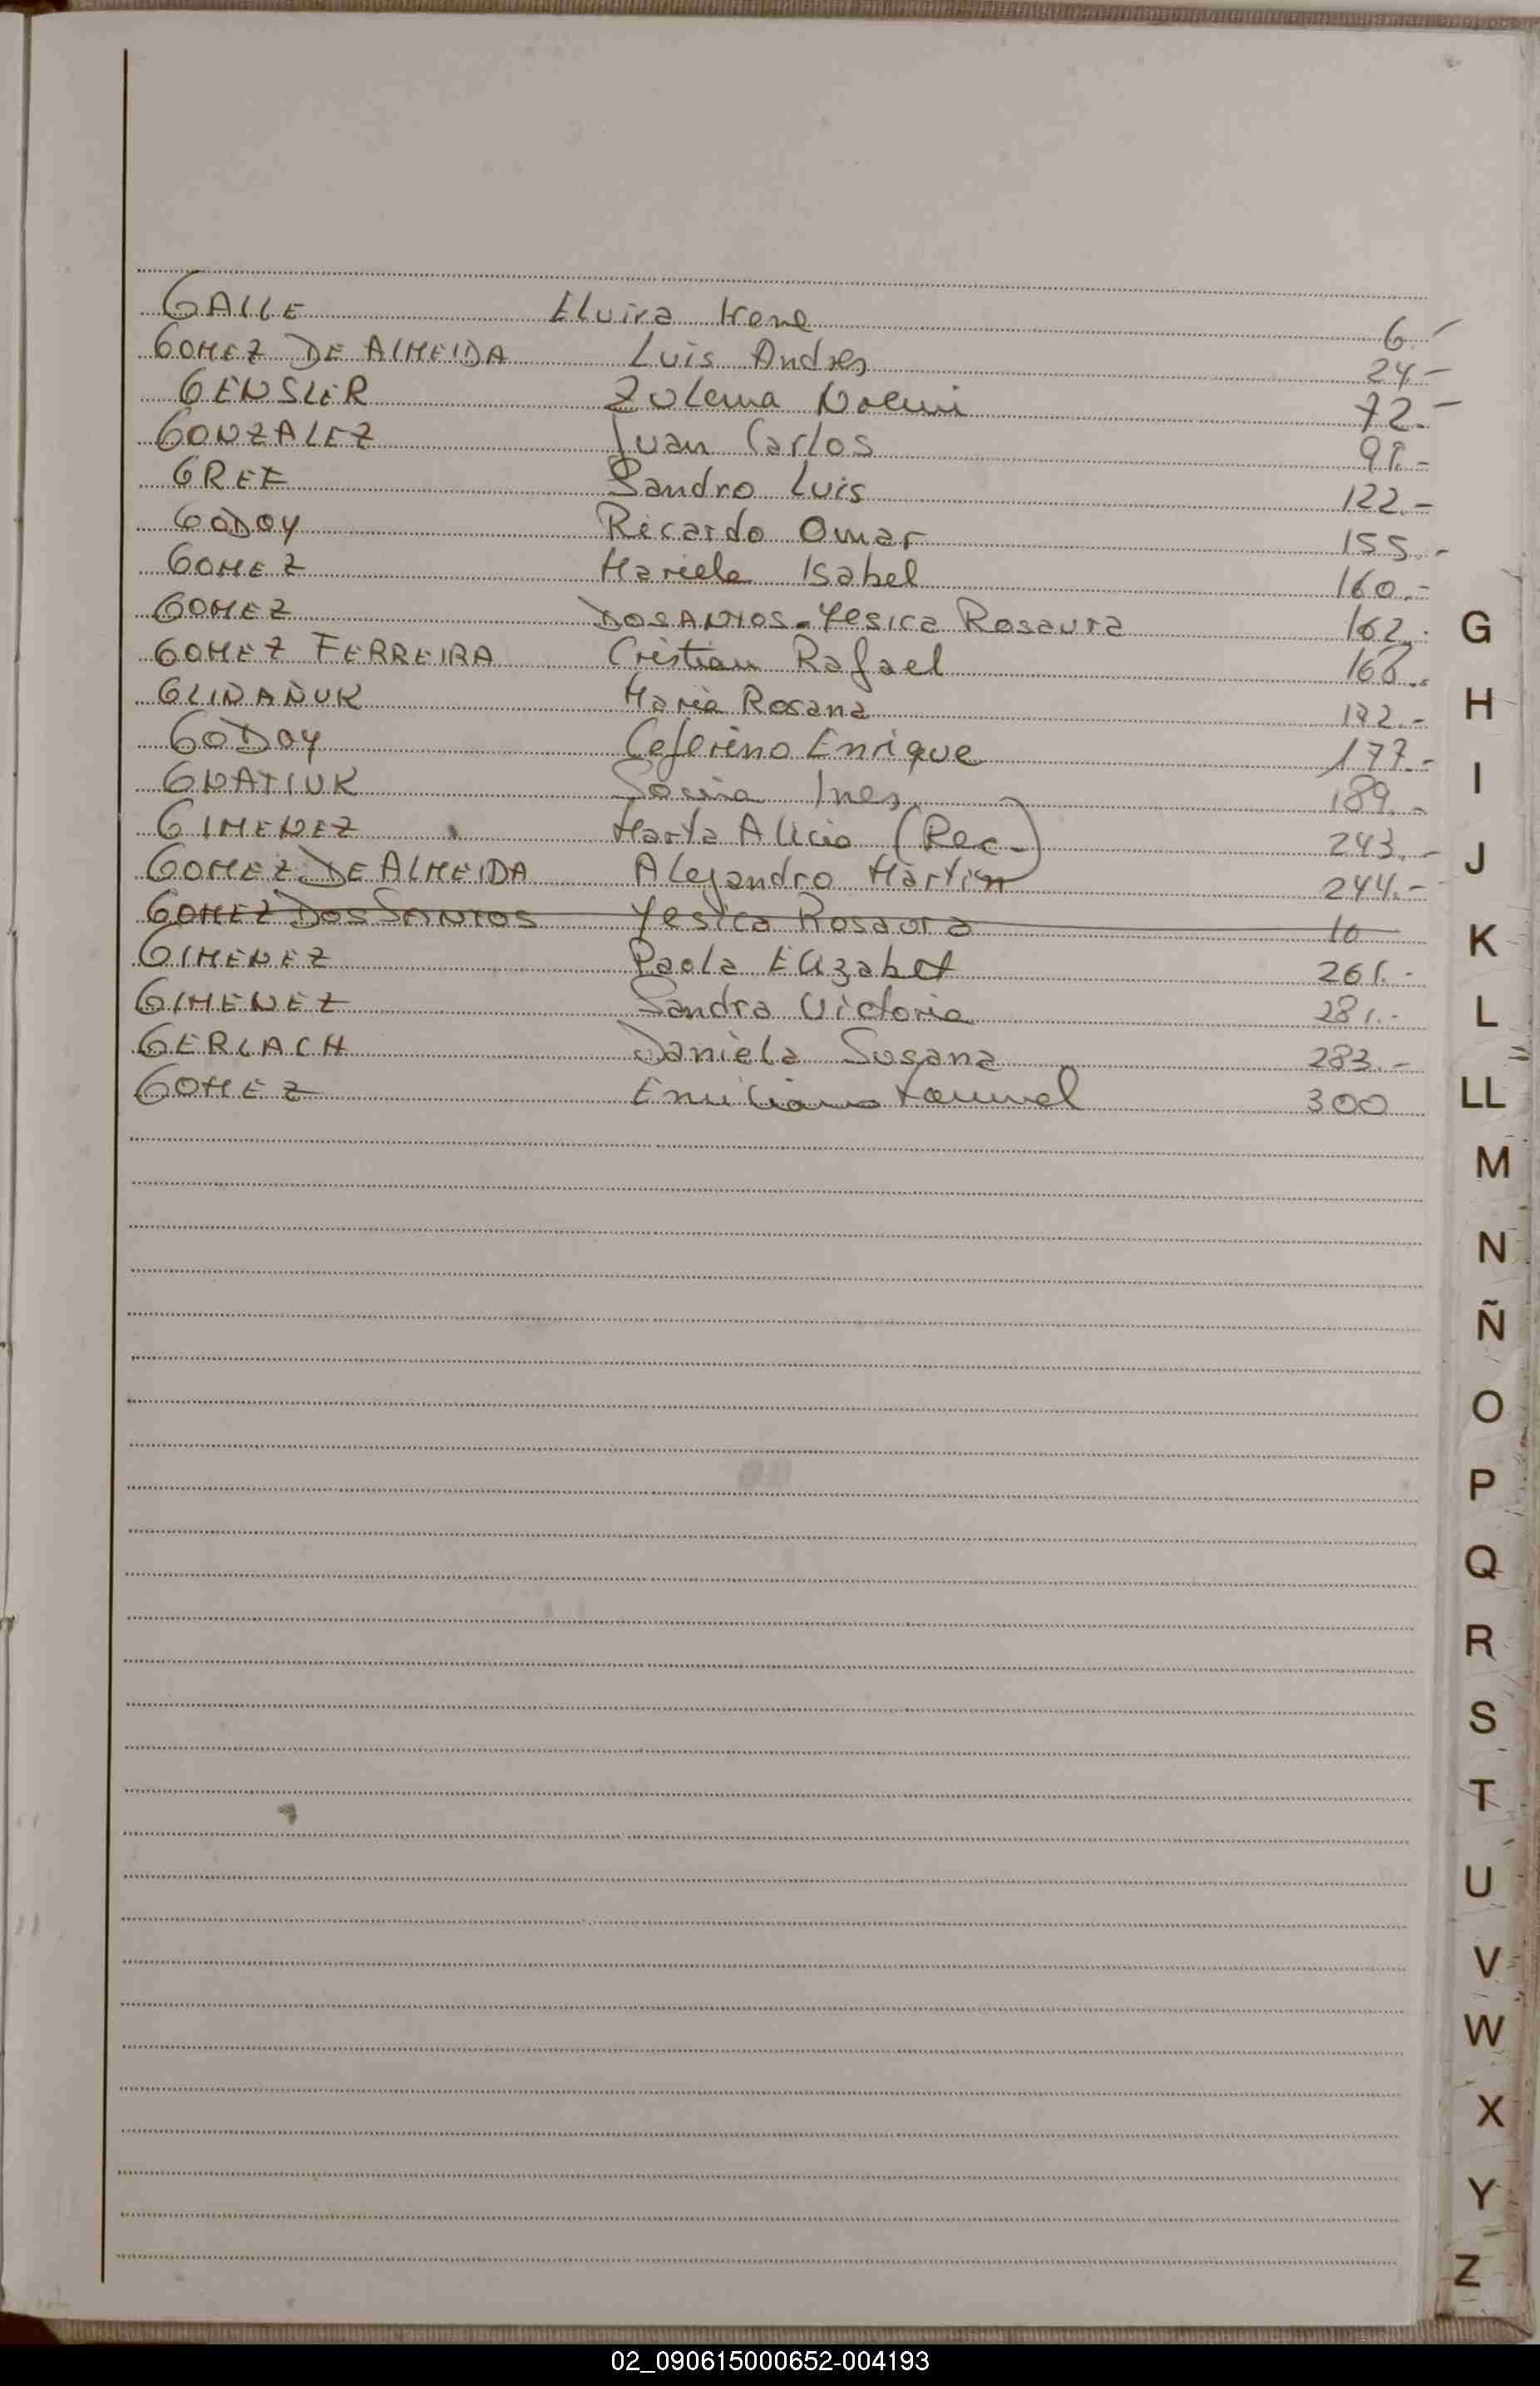 GALLE Elvira Irene 6.-
GOMEZ DE ALMEIDA Luis Andres 24-
GENSLER Zulema Noemi 72.-
GONZALEZ Juan Carlos 91.-
GREE Sandro Luis 122.-
GODOY Ricardo Omar 155.-
GOMEZ Mariela Isabel 160.-
GOMEZ DOSANTOS-Yesica Rosaura 162.-
GOMEZ FERREIRA Cristian Rafael 168.-
GLINAÑUK Maria Rosana 172.-
GODOY Ceferino Enrique 177.-
GNATIUK Ines 189.-
GIMENEZ Marta Alicia (Rec-) 243.-
GOMEZ DE ALMEIDA Alejandro Martin 244.-
GOMEZ DOS SANTOS Yesica Rosaura 10
GIMENEZ Paola Elizabet 261.-
GIMENEZ Sandra Victoria 281.-
GERLACH Daniela Susana 283.-
GOMEZ Emiliano 300
G
H
I
J
K
L
LL
M
N
Ñ
O
P
Q
R
S
T
U
V
W
X
Y
Z
02_090615000652-004193